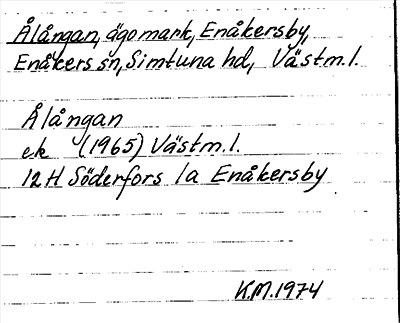 Ålångan, ägomark, Enåkersby,
Enåkers sn, Simtuna hd, Västm.l.
Ålångan
ek (1965) Västm.l.
12H Söderfors 1a Enåkersby
K.M.1974